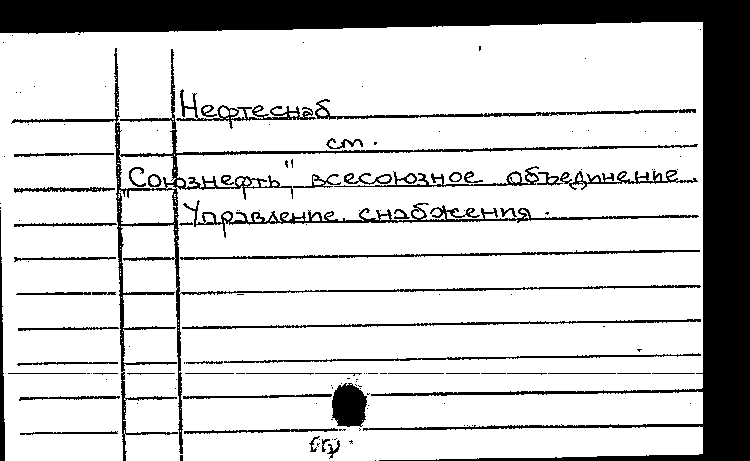 Нефтеснаб
см.
"Союзнефть", всесоюзное объединение.
Управление снабжения.